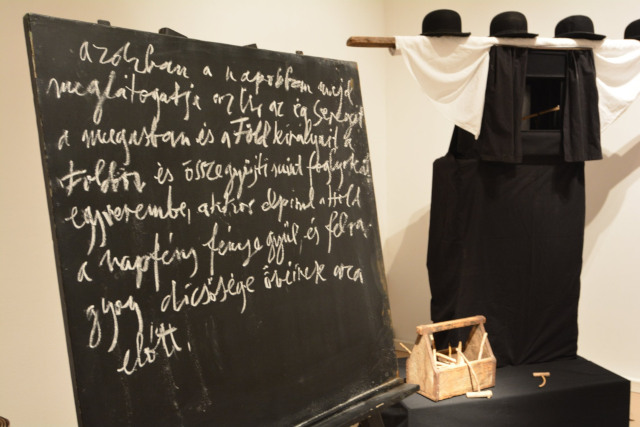 azokban a napokban majd
meglátogatja az Úr az ég Seregeit
a magasban és a Föld királyait a
Földön és összegyűjti mint foglyokat
egyverembe, akkor elpirul a Hold
a napfény fénye gyúl, és felra-
gyog dicsősége övéinek arca
előtt.